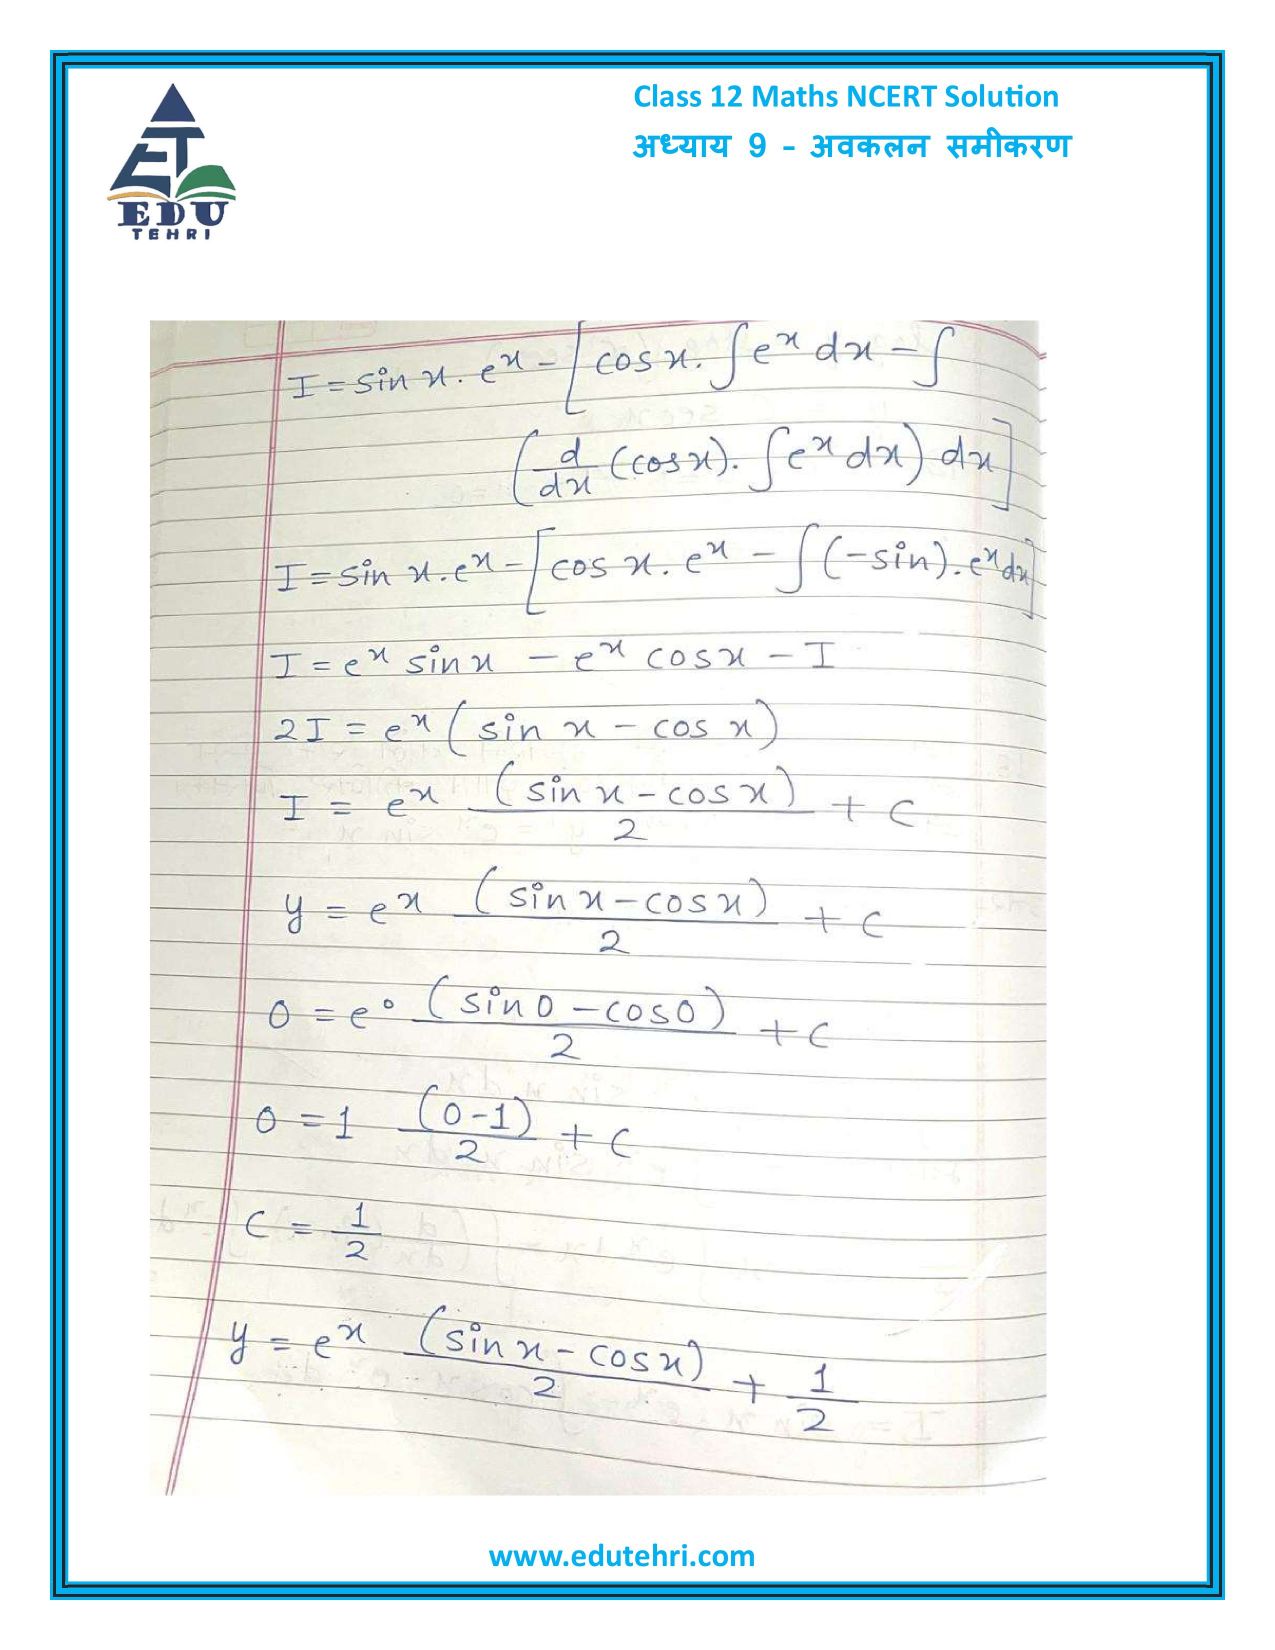 Class 12 Maths NCERT Solution
अध्याय 9 - अवकलन समीकरण
EDU
TEHRI
I = sin x . e^x - [cos x . ∫e^x dx - ∫
(d/dx (cos x) . ∫e^x dx) dx]
I = sin x . e^x - [cos x . e^x - ∫(-sin) . e^x dx]
I = e^x sin x - e^x cos x - I
2I = e^x (sin x - cos x)
I = e^x (sin x - cos x)/2 + c
y = e^x (sin x - cos x)/2 + c
0 = e^0 (sin 0 - cos 0)/2 + c
0 = 1 (0-1)/2 + c
c = 1/2
y = e^x (sin x - cos x)/2 + 1/2
www.edutehri.com